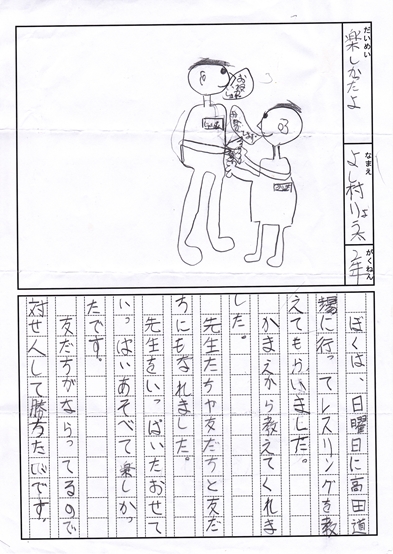 だいめい
楽しかたよ
なまえ
よし村りょう
がくねん
2年
ぼくは、日曜日に高田道
場に行ってレスリングを教
えてもらいました。
かまえから教えてくれま
した。
先生たちや友だちと友だ
ちにもなれました。
先生をいっぱいたおせて
いっぱいあそべて楽しかっ
たです。
友だちがならってるので
対せん人して勝ちたいです。